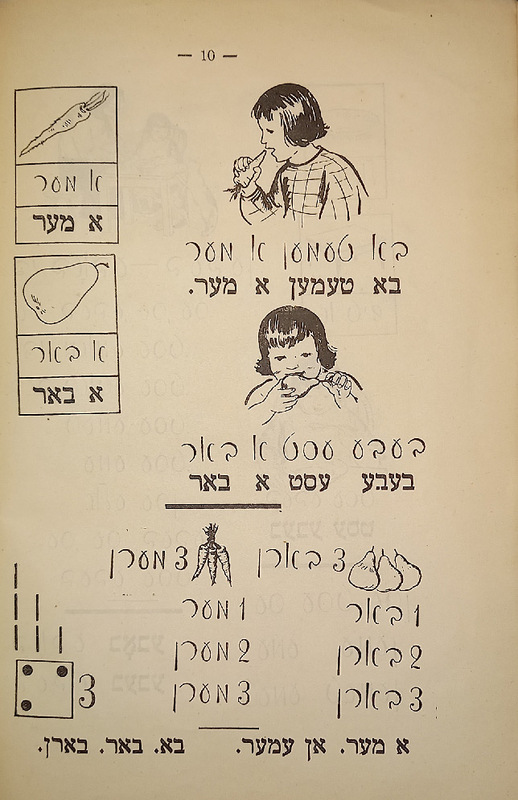 — 10 —
א מער
א מער
בא טעמען א מער
בא טעמען א מער.
א באר
א באר
בעבע עסט א באר
בעבע עסט א באר
3 בארן
3 מערן
1 באר
1 מער
2 בארן
2 מערן
3 בארן
3 מערן
3
א מער. אן עמער. בא. באר. בארן.